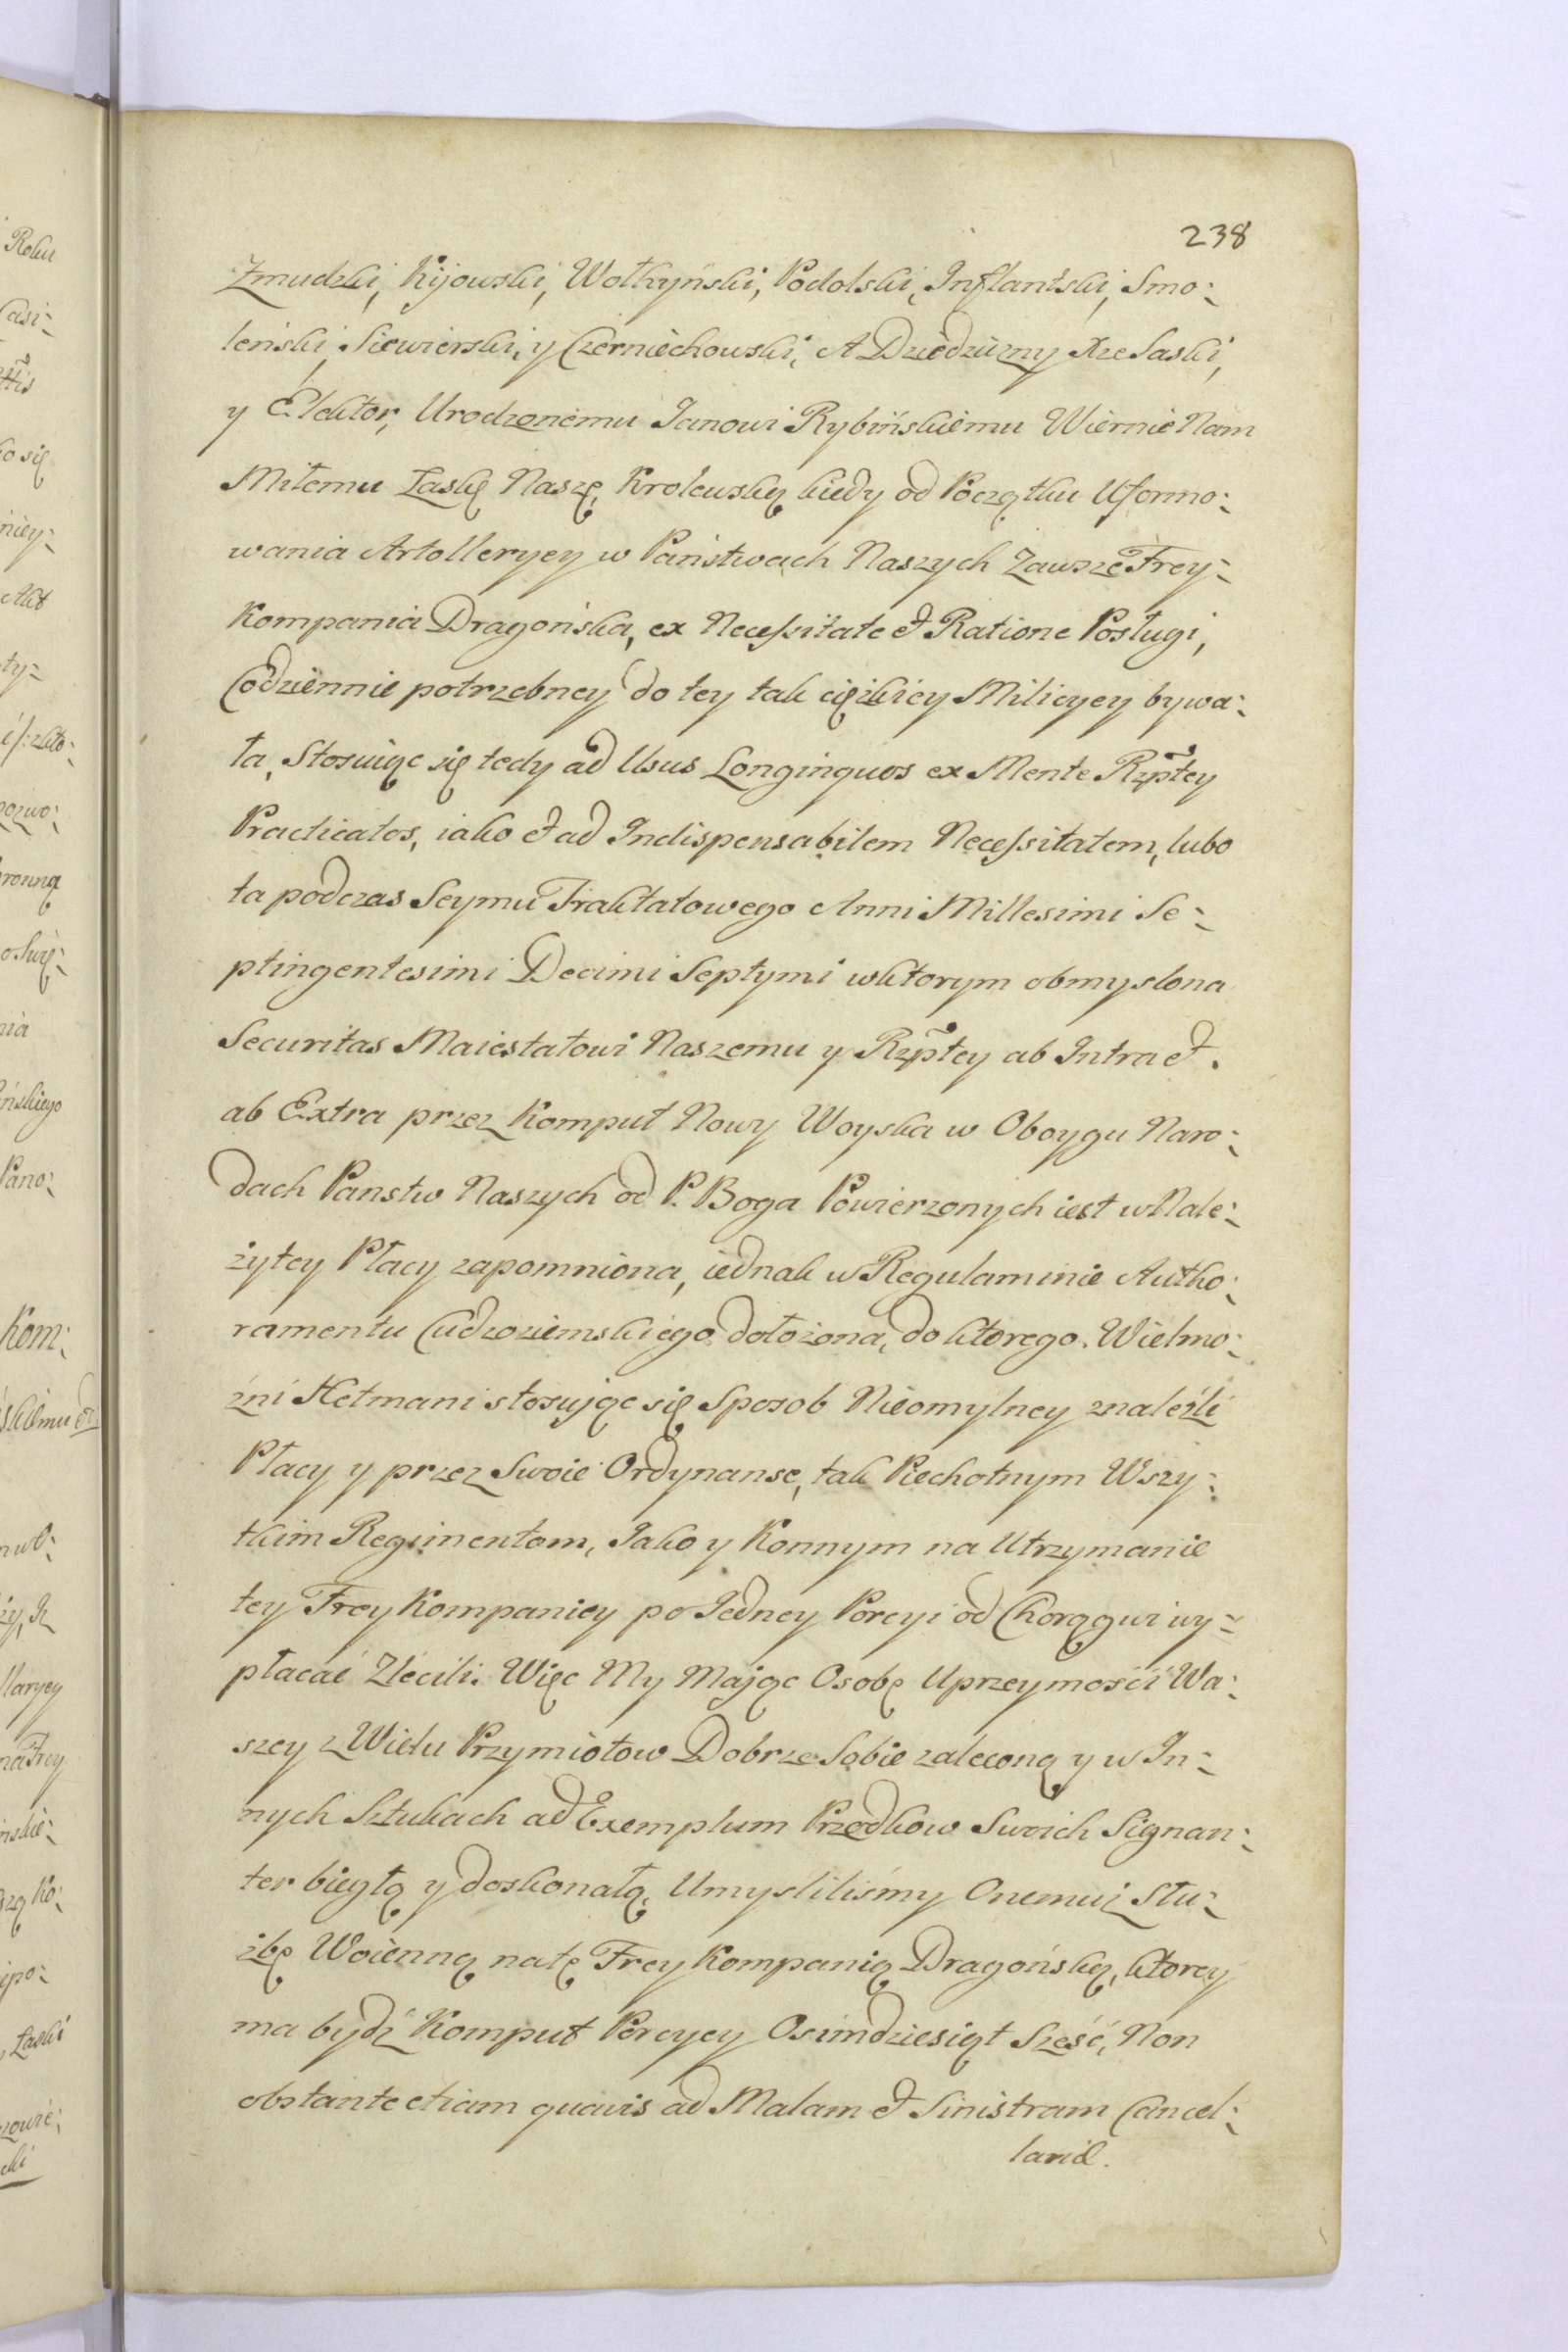 238
Zmudzki, Kijowski, Wołhyński, Podolski, Inflantski, Smo:
leński, Siewierski, y Czerniechowski, A Dziedziczny Xże Saski,
y Elektor, Urodzonemu Janowi Rybińskiemu Wiernie Nam
Miłemu Łaskę Naszę Krolewską kiedy od Początku Uformo:
wania Artolleryey w Państwach Naszych Zawsze Frey:
Kompania Dragońska, ex Necessitate et Ratione Posługi,
Codziennie potrzebney do tey tak ciężkiey Milicyey bywa:
ła, Stosuiąc się tedy ad Usus Longinquos ex Mente Rzptey
Practicatos, iako et ad Indispensabilem Necessitatem, lubo
ta podczas Seymu Traktatowego Anni Millesimi Se:
ptingentesimi Decimi Septymi wktorym obmyslona
Securitas Maiestatowi Naszemu y Rzptey ab Intra et.
ab Extra przez Komput Nowy Woyska w Oboygu Naro:
dach Panstw Naszych od P. Boga Powierzonych iest w Nale:
żytey Płacy zapomniona, iednak w Regulaminie Autho:
ramentu Cudzoziemskiego dołożona, do ktorego. Wielmo:
żni Hetmani stosując się Sposob Nieomylney znaleźli
Płacy y przez Swoie Ordynanse, tak Piechotnym Wszy:
tkim Regimentom, Jako y Konnym na Utrzymanie
tey Frey Kompaniey po Jedney Porcyi od Chorągwi wy:
płacać Zlecili. Więc My Mając Osobę Uprzeymości Wa:
szey z Wielu Przymiotow Dobrze Sobie zaleconą y w In:
nych Sztukach ad Exemplum Przodkow Swoich Signan:
ter biegłą y doskonałą, Umyśliliśmy Onemuż Słu:
żbę Woienną natę Frey Kompanią Dragońską, ktorey
ma bydź Komput Porcyey Osimdziesiąt Sześć, Non
obstante etiam quavis ad Malam et Sinistram Cancel:
lariæ.